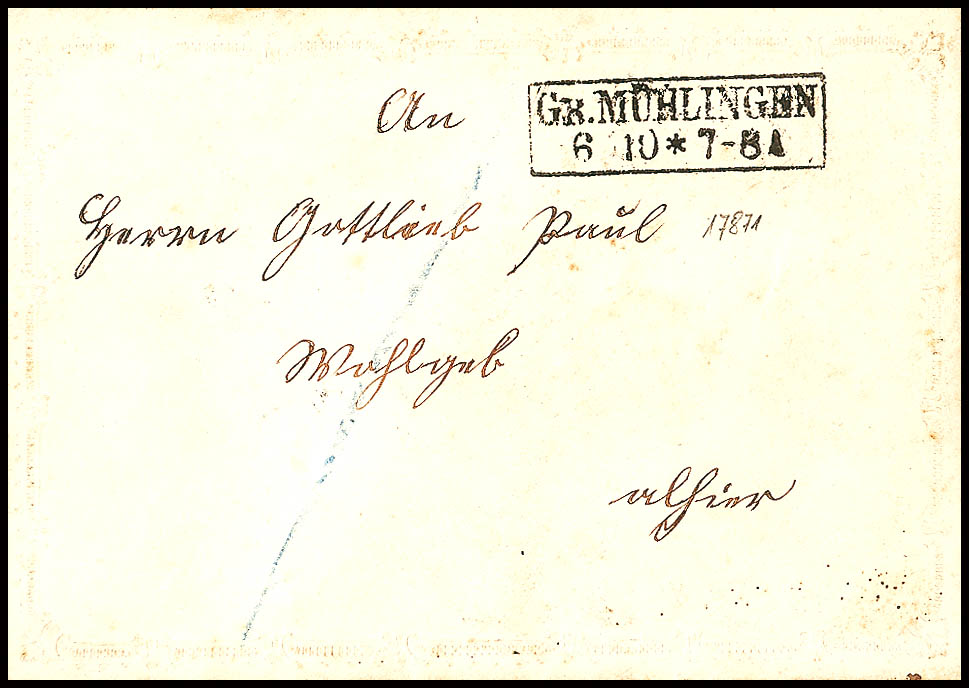 An
GR. MÜHLINGEN
6 10 * 7-8 A
Herrn Gottlieb Paul 17871
Wohlgeb
alhier